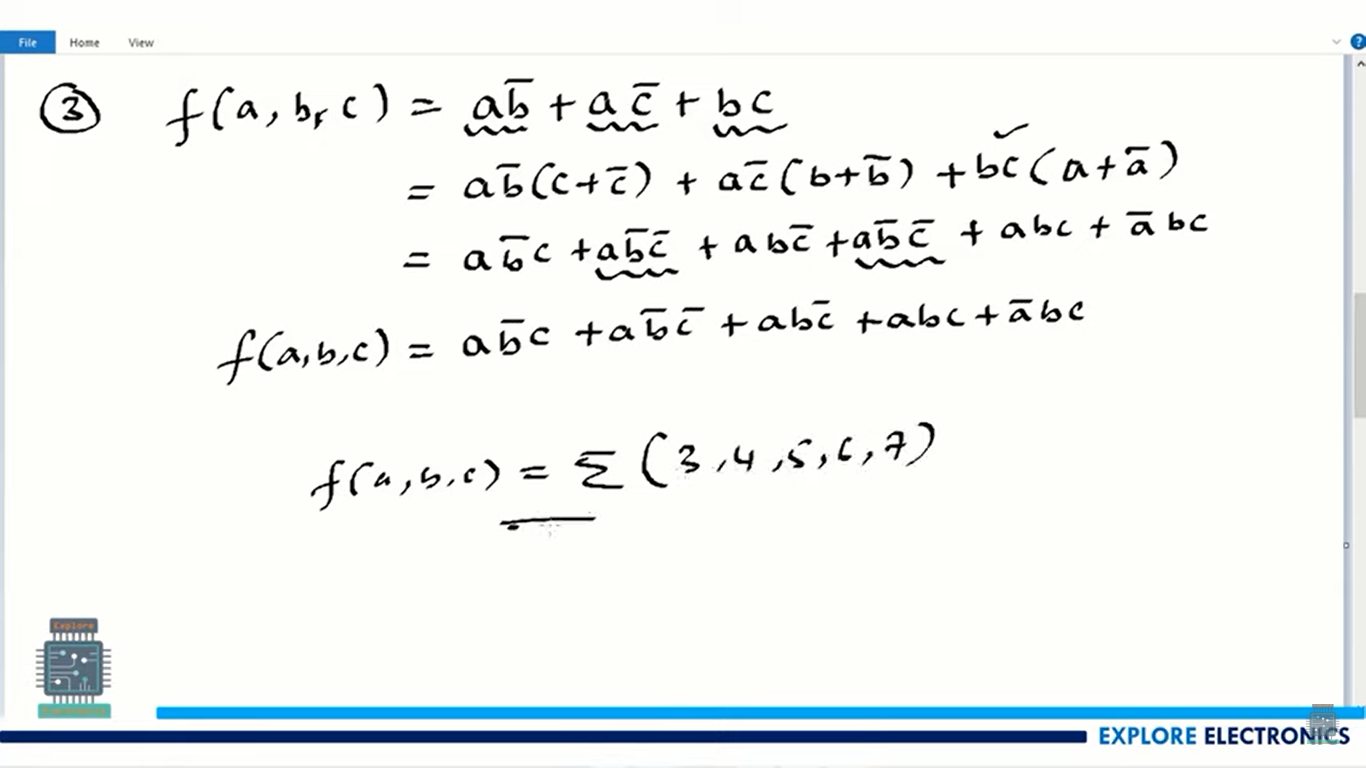 File Home View
③ f(a, b, c) = ab̅ + ac̅ + bc
= ab̅(c+c̅) + ac̅(b+b̅) + bc(a+a̅)
= ab̅c + ab̅c̅ + abc̅ + ab̅c̅ + abc + a̅bc
f(a,b,c) = ab̅c + ab̅c̅ + abc̅ + abc + a̅bc
f(a,b,c) = Σ(3,4,5,6,7)
Explore
EXPLORE ELECTRONICS